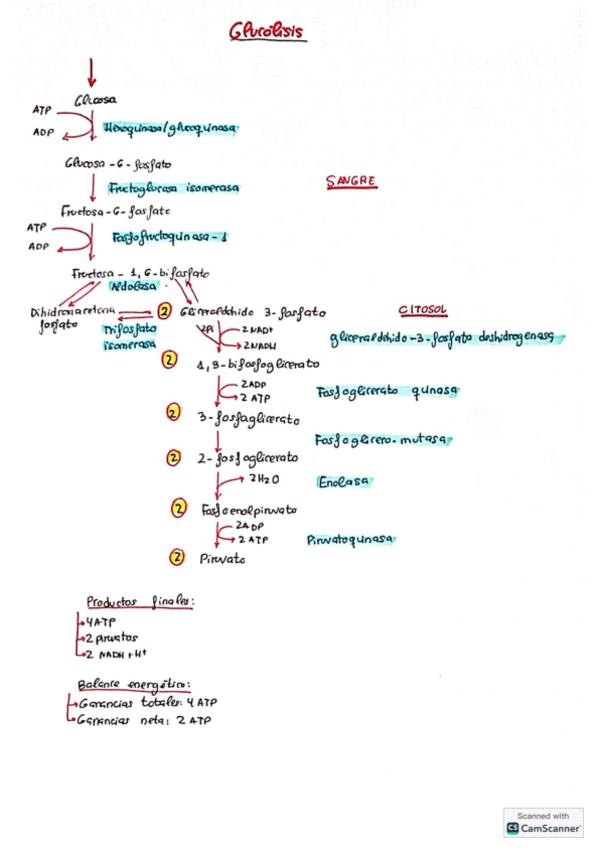 Glucólisis
Glucosa
ATP
ADP
Hexoquinasa/glucoquinasa
Glucosa-6-fosfato
SANGRE
Fructoglucosa isomerasa
Fructosa-6-fosfato
ATP
ADP
Fosfofructoquinasa-1
Fructosa-1,6-bifosfato
Aldolasa
Dihidroxiacetona
fosfato
Trifosfato
isomerasa
2 Gliceraldehido 3-fosfato
CITOSOL
2Pi
2 NAD+
2 NADH
gliceraldehido-3-fosfato deshidrogenasa
2 1,3-bifosfoglicerato
2ADP
2 ATP
Fosfoglicerato quinasa
2 3-fosfoglicerato
Fosfoglicero-mutasa
2 2-fosfoglicerato
2H2O
Enolasa
2 Fosfoenolpiruvato
2ADP
2 ATP
Piruvatoquinasa
2 Piruvato
Productos finales:
4ATP
2 piruvatos
2 NADH+H+
Balance energético:
Ganancias totales: 4 ATP
Ganancias neta: 2 ATP
Scanned with
CS CamScanner